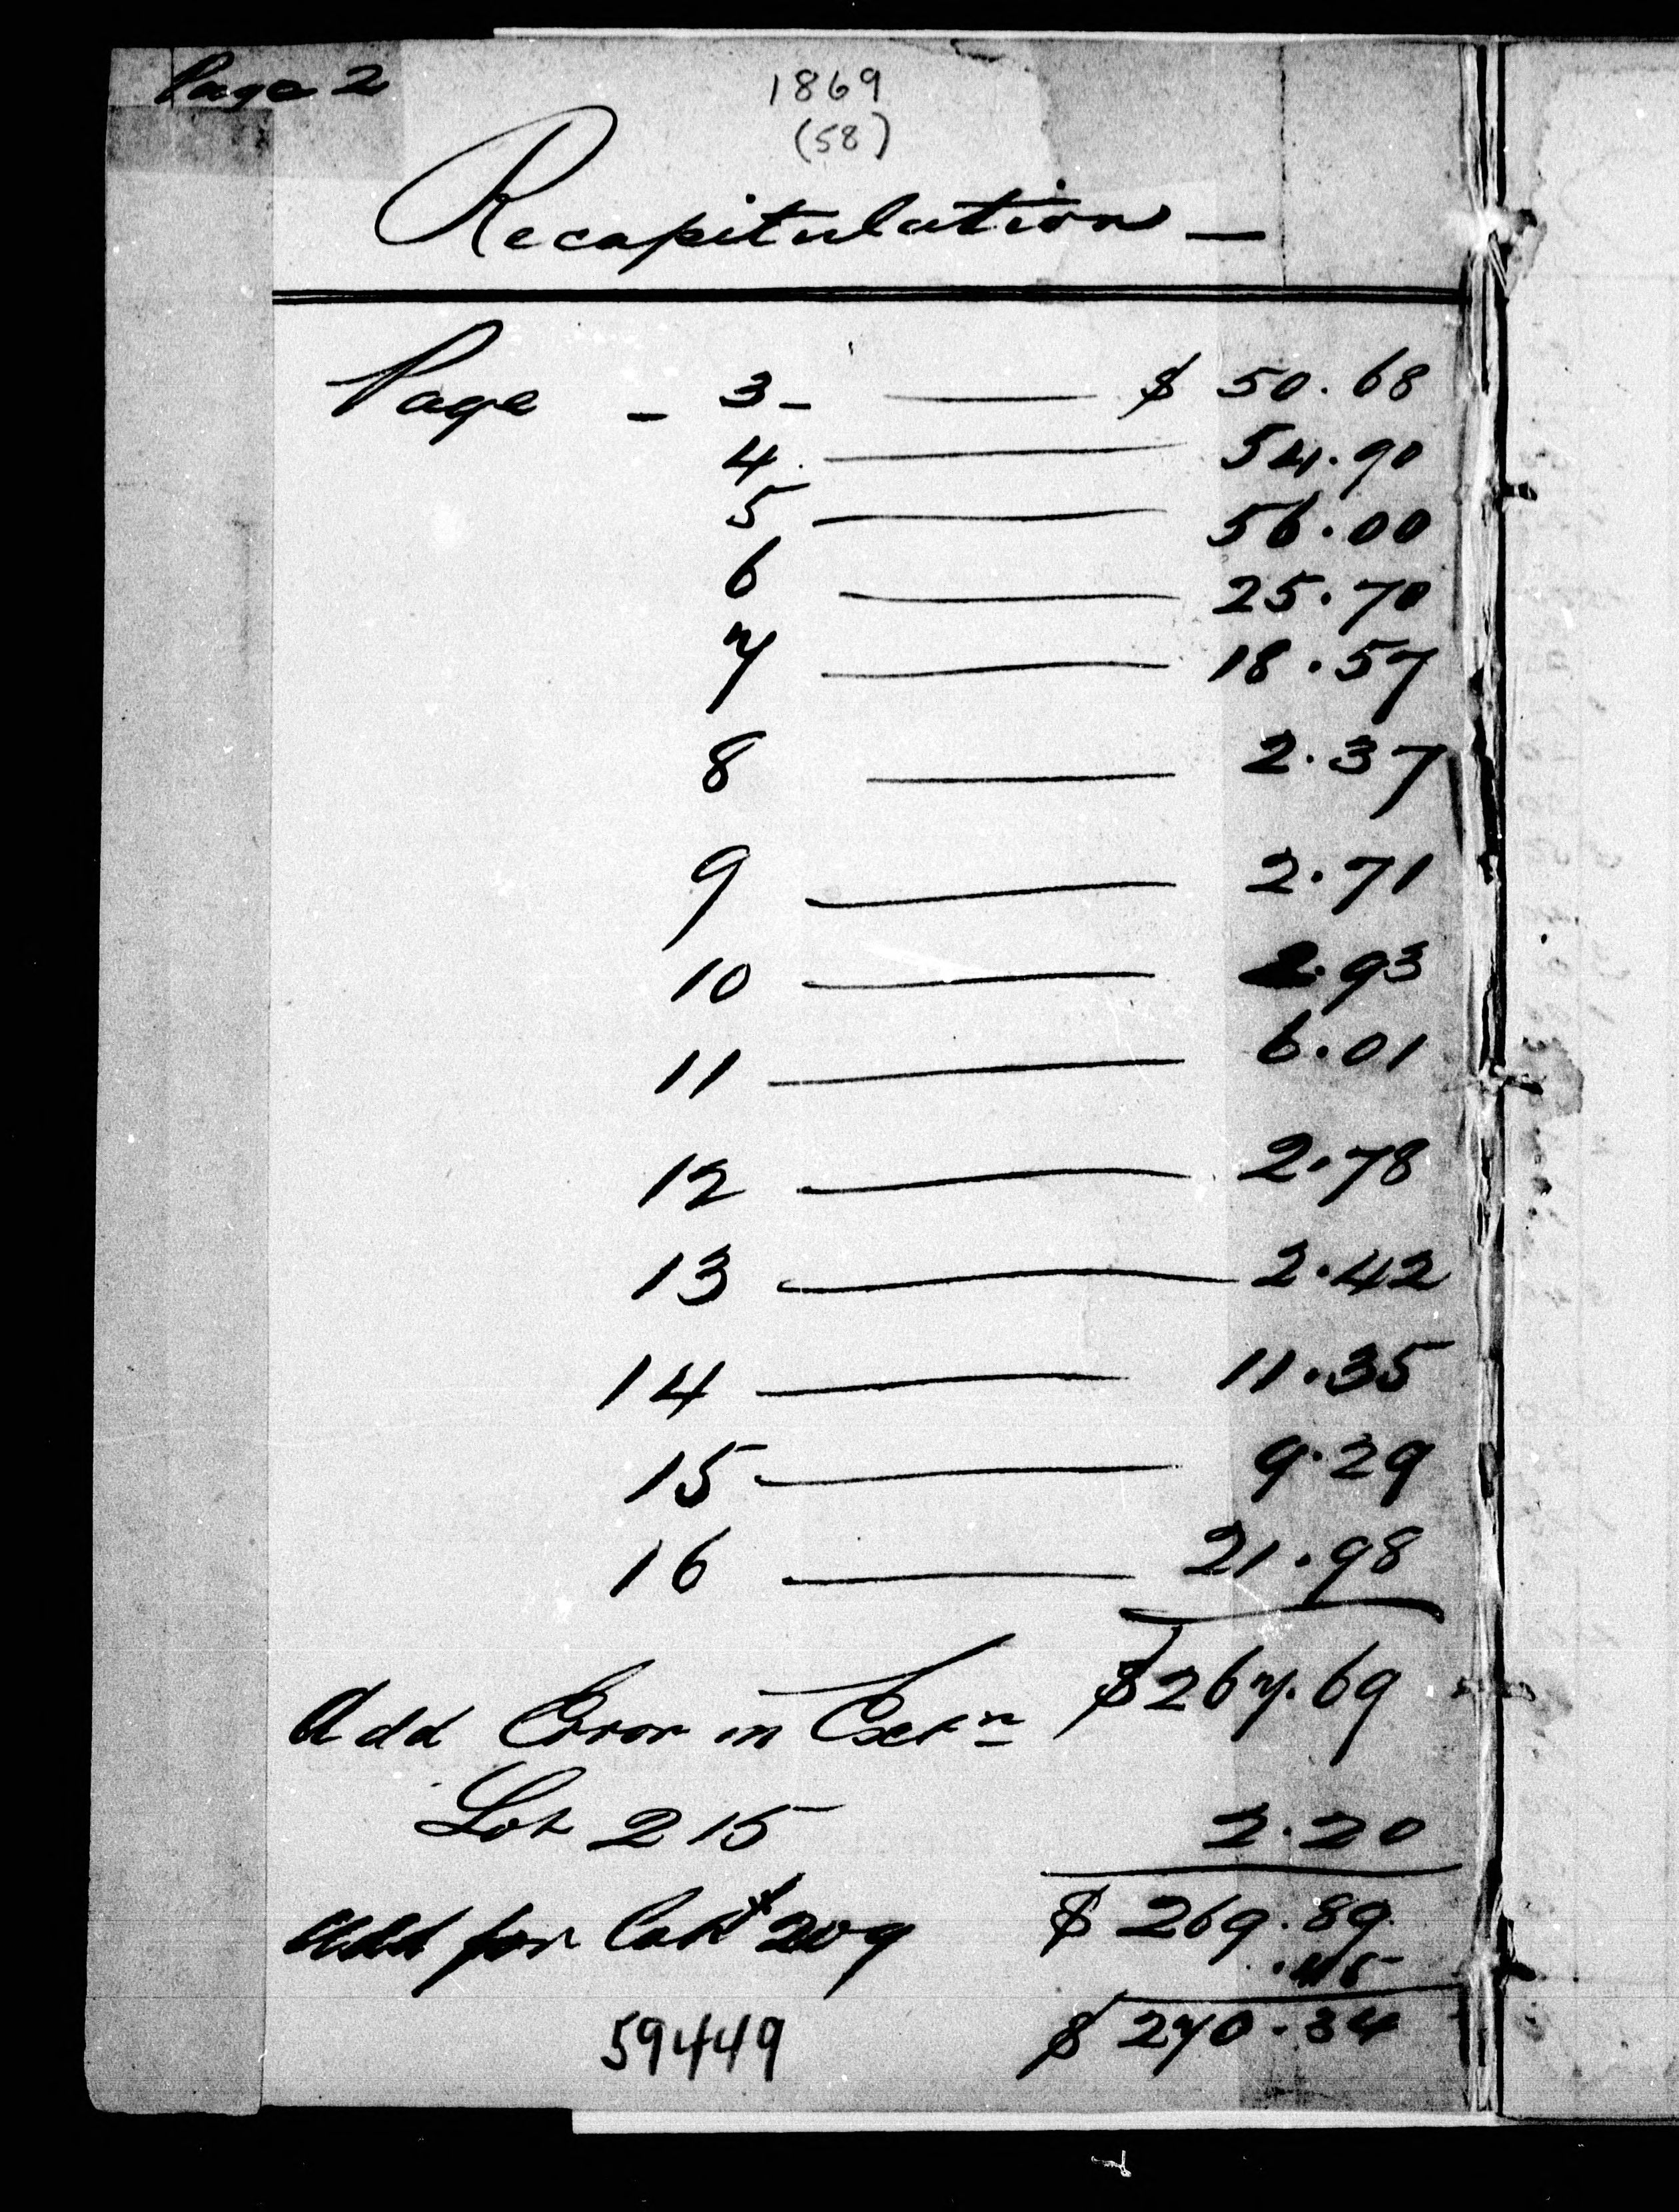 Page 2
1869
(58)
Recapitulation —
Page - 3 - — $ 50.68
4 — 54.90
5 — 56.00
6 — 25.70
7 — 18.57
8 — 2.37
9 — 2.71
10 — 2.93
11 — 6.01
12 — 2.78
13 — 2.42
14 — 11.35
15 — 9.29
16 — 21.98
$267.69
Add Error in Extn
Lot 215 2.20
$ 269.89
Add for Lot 209 .45
59449 $ 270.34